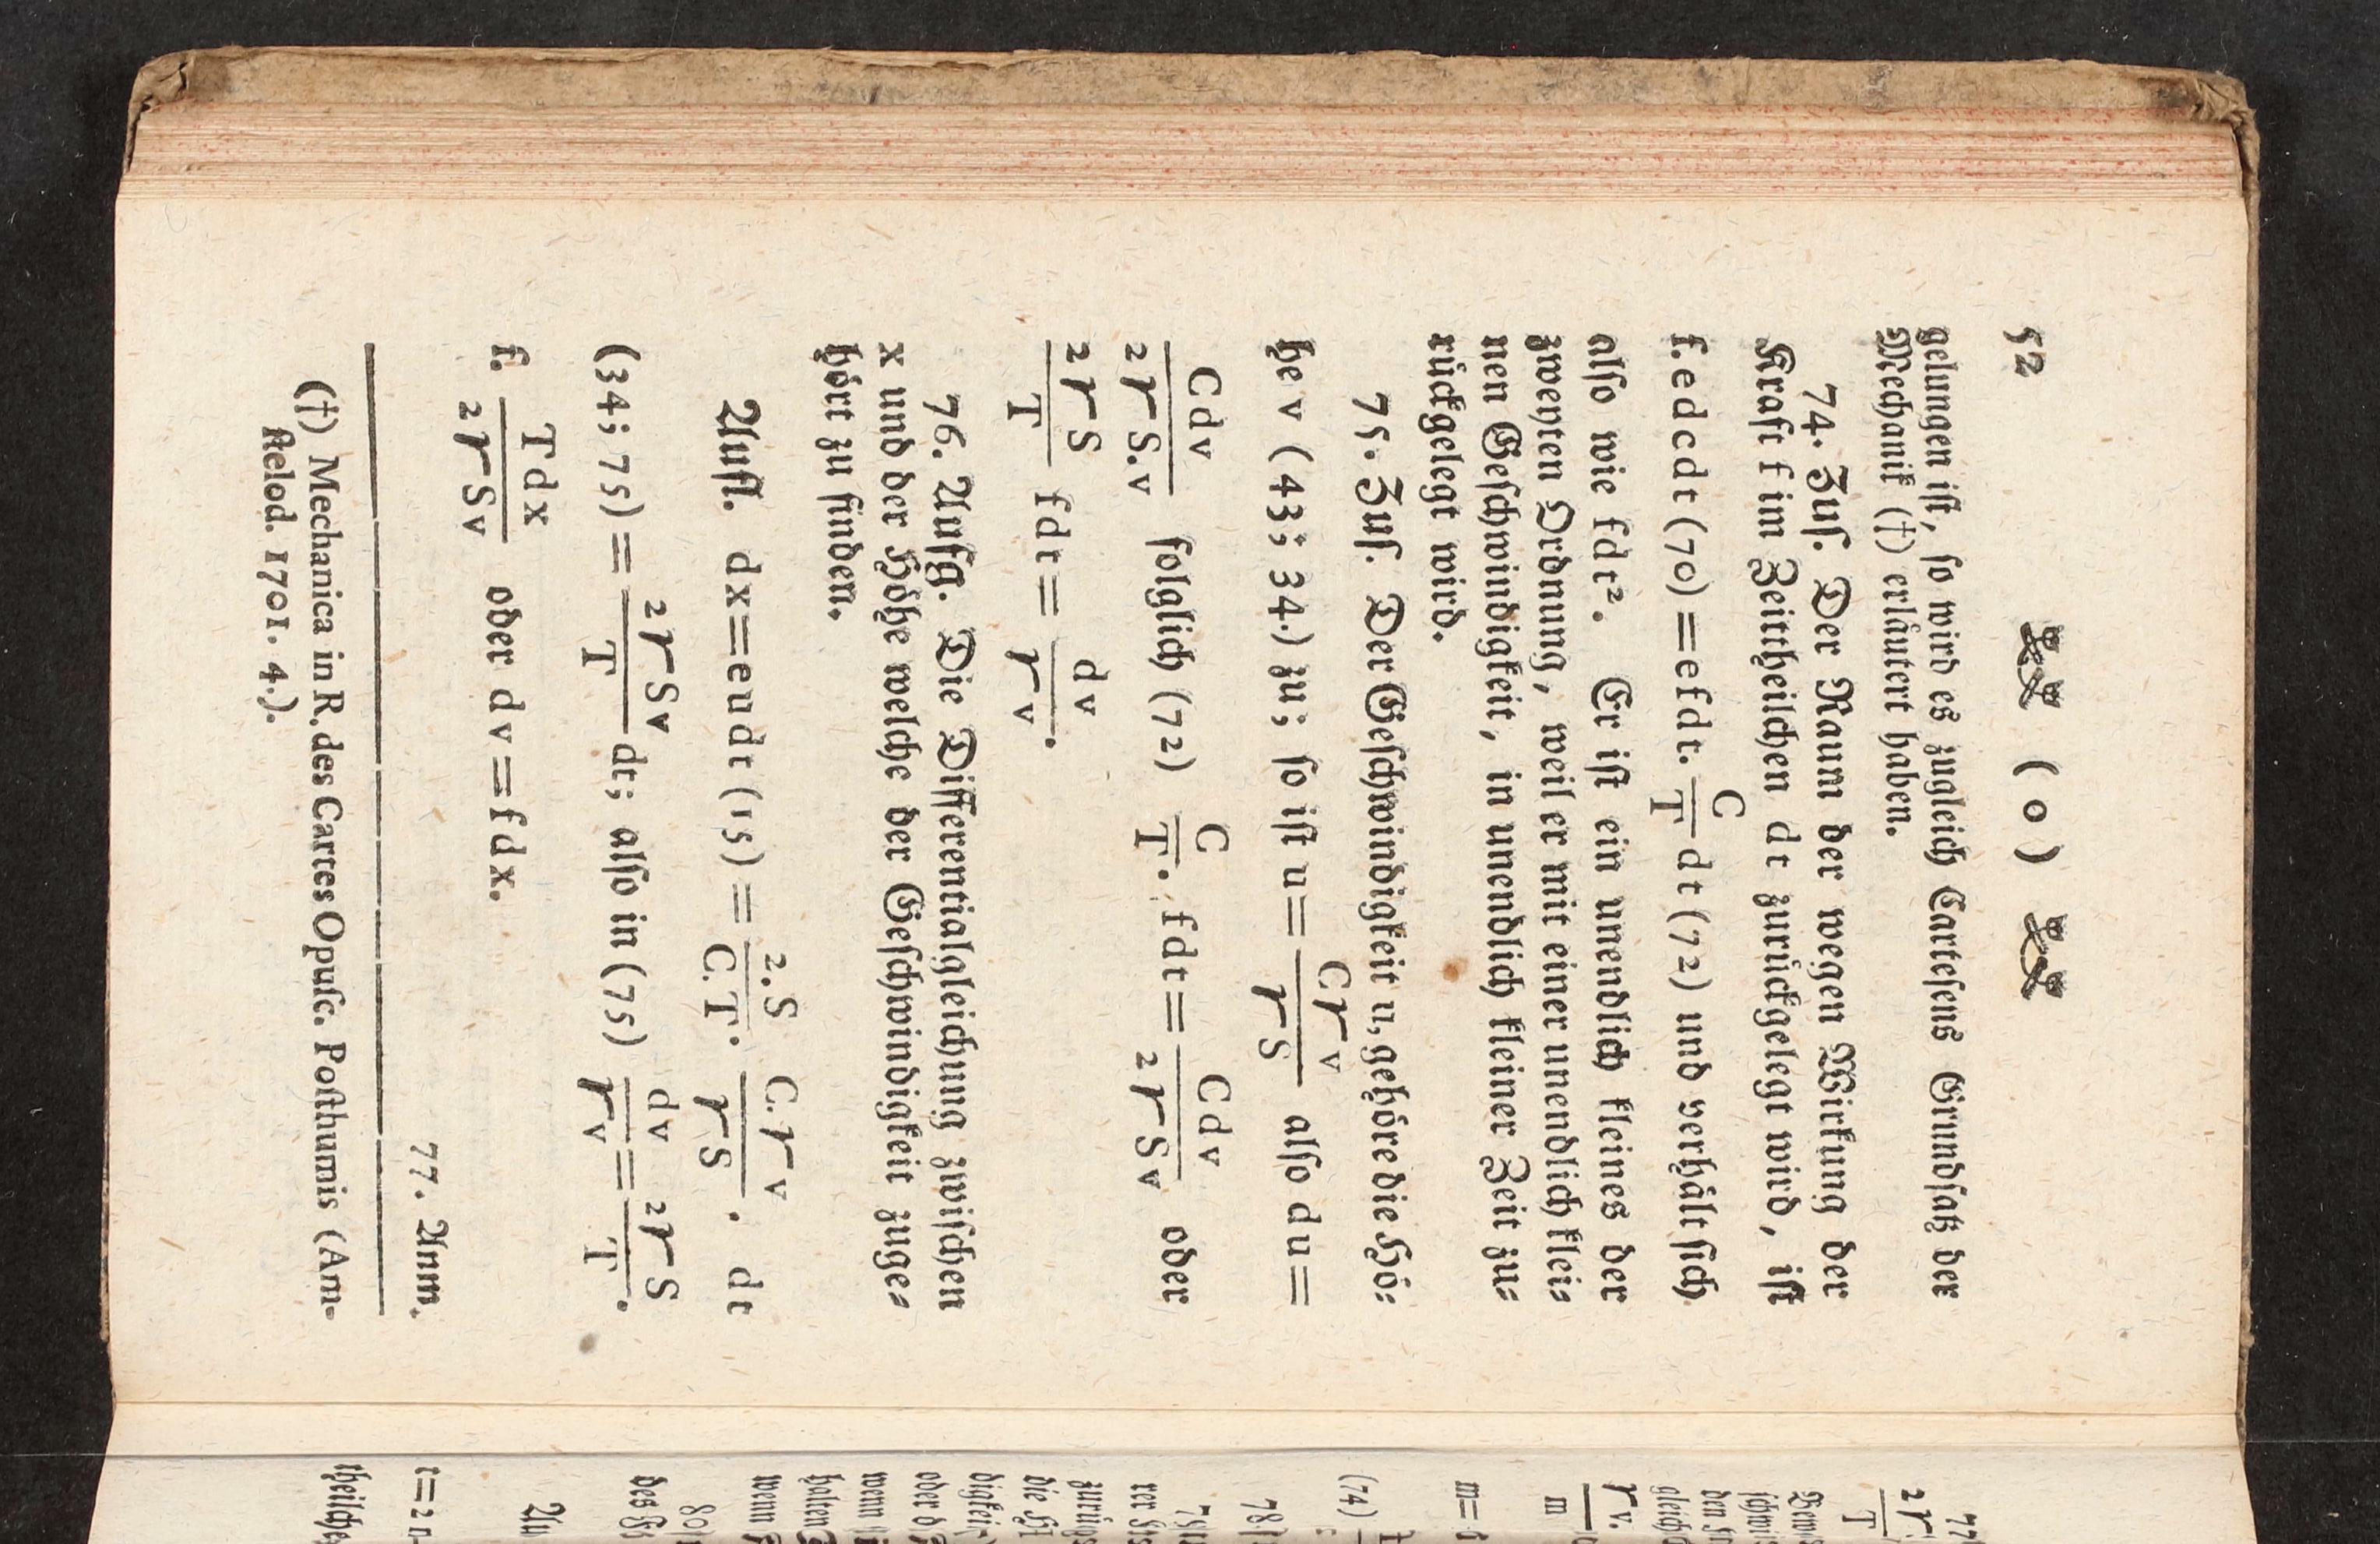 52 ( o )
gelungen ist, so wird es zugleich Cartesens Grundsatz der
Mechanik (†) erläutert haben.
74. Zus. Der Raum der wegen Wirkung der
Kraft f im Zeittheilchen dt zurückgelegt wird, ist
f. e d c d t (70) = e f d t. C/T d t (72) und verhält sich
also wie f d t². Er ist ein unendlich kleines der
zweyten Ordnung, weil er mit einer unendlich klei⸗
nen Geschwindigkeit, in unendlich kleiner Zeit zu⸗
rückgelegt wird.
75. Zus. Der Geschwindigkeit u, gehöre die Hö⸗
he v (43; 34.) zu; so ist u = C√v/√S also d u =
C d v/2√S.v folglich (72) C/T. f d t = C d v/2√Sv oder
2√S/T f d t = d v/√v.
76. Aufg. Die Differentialgleichung zwischen
x und der Höhe welche der Geschwindigkeit zuge⸗
hört zu finden.
Aufl. dx = eudt (15) = 2.S/C.T. C.√v/√S . dt
(34; 75) = 2√Sv/T dt; also in (75) dv/√v = 2√S/T.
f. T d x/2√Sv oder d v = f d x.
77. Anm.
(†) Mechanica in R. des Cartes Opusc. Posthumis (Am-
stelod. 1701. 4.).
77
2√
T
den
gleich
√v.
m
m =
(74)
78
die
digkei
oder d
wenn
wenn
80
des
t = 2